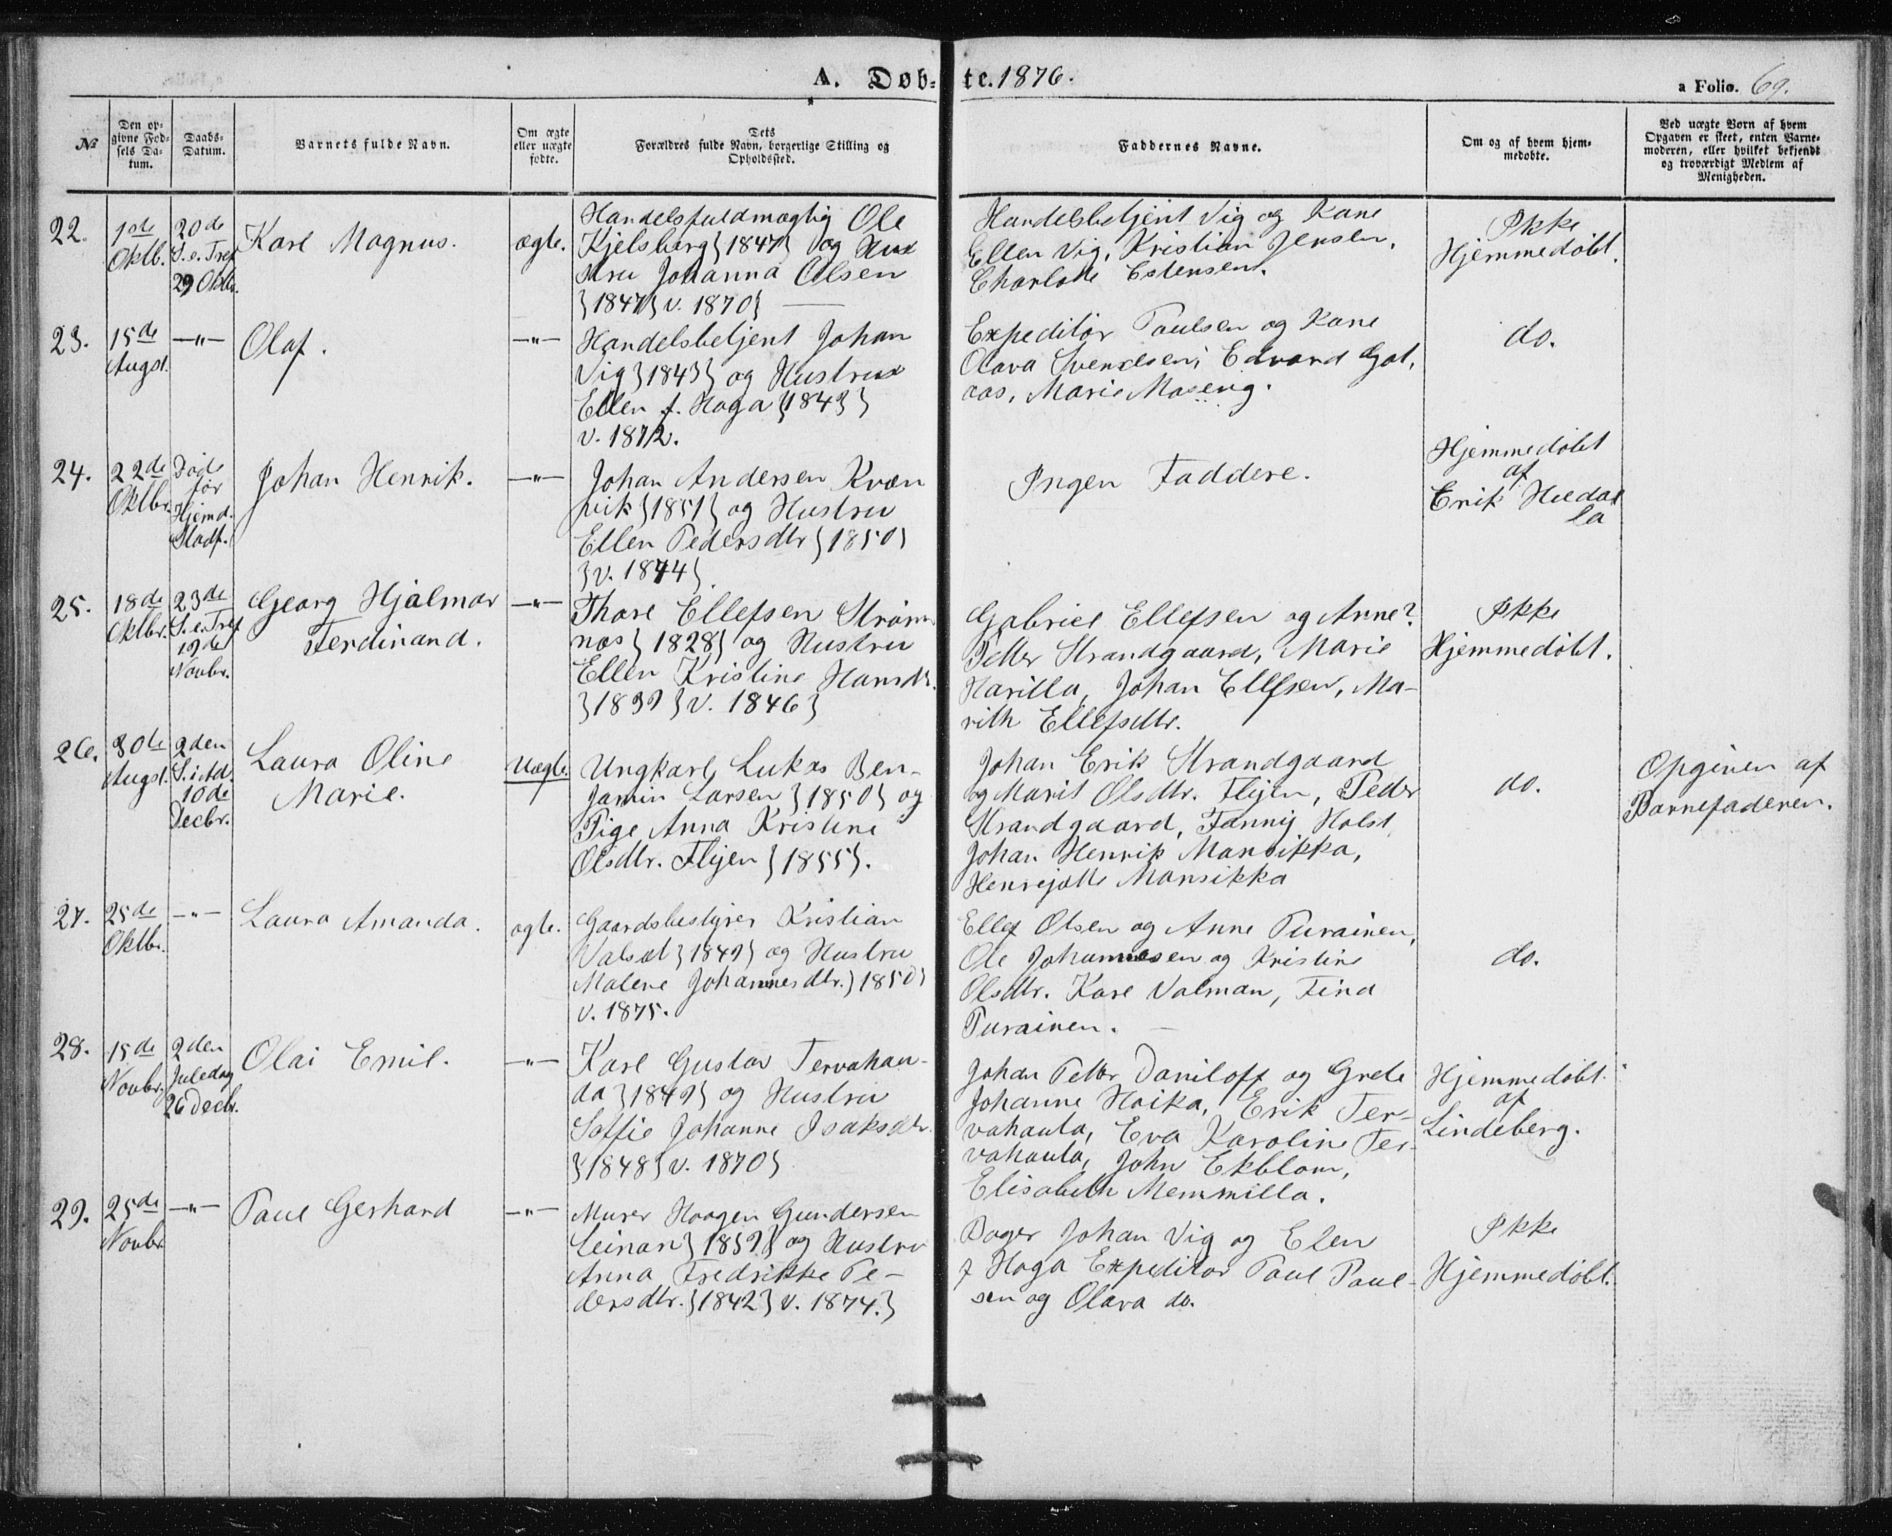 A. Døb-te. 1876.
a Folio. 69.
№
Den op-
givne Fød-
sels Da-
tum.
Daabs-
Datum.
Barnets fulde Navn.
Om ægte
eller uægte
fødte.
Dets
Forældres fulde Navn, borgerlige Stilling og
Opholdssted.
Faddernes Navne.
Om og af hvem hjem-
medøbte.
Ved uægte Børn af hvem
Opgaven er skeet, enten Barne-
moderen, eller hvilket bekjendt
og troværdigt Medlem af
Menigheden.
22.
1ste
Oktb.
20de
S. e. Tref
29 Oktbr.
Karl Magnus.
ægte.
Handelsfuldmægtig Ole
Kjelsberg } 1847 } og Hus
tru Johanna Olsen
} 1847 } v. 1870 }
Handelsbetjent Vig og Kone
Ellen Vig, Kristian Jensen,
Charlotte Estensen.
Ikke
Hjemmedøbt.
23.
15de
Augst.
—"—
Olaf.
—"—
Handelsbetjent Johan
Vig } 1843 } og Hustru
Ellen f. Haga } 1843 }
v. 1872.
Expeditør Paulsen og Kone
Olava Svendsen, Edvard Gat,
aas, Marie Maseng.
do.
24.
22de
Oktbr.
Døde
før
Hjemd.
Stadf.
Johan Henrik.
—"—
Johan Andersen Kvæn
vik } 1851 } og Hustru
Ellen Pedersdtr } 1850 }
} v. 1874 }
Ingen Faddere.
Hjemmedøbt
af
Erik Hiedal
la
25.
18de
Oktbr.
23de
S. e. Tref
19de
Novbr.
Georg Hjalmar
Ferdinand.
—"—
Thore Ellefsen Strøm
næs } 1828 } og Hustru
Ellen Kristine Hansdr.
} 1839 } v. 1846 }
Gabriel Ellefsen og Anne?
Petter Strandgaard, Marie
Harilla, Johan Ellefsen, Ma-
rith Ellefsdtr.
Ikke
Hjemmedøbt.
26.
30te
Augst.
2den
S. i Ad.
10de
Decbr.
Laura Oline
Marie.
Uægte.
Ungkarl Lukas Ben-
jamin Larsen } 1850 } og
Pige Anna Kristine
Olsdtr. Flijen } 1855 }.
Johan Erik Strandgaard
og Marit Olsdtr. Flijen, Peder
Strandgaard, Fannij Holst,
Johan Henrik Mansikka,
Henrejætte Mansikka
do.
Opgiven af
Barnefaderen.
27.
25de
Oktbr.
—"—
Laura Amanda.
ægte.
Gaardsbestyrer Kristian
Valsæt } 1849 } og Hustru
Malene Johannesdtr. } 1850 }
v. 1875.
Ellef Olsen og Anne Purainen,
Ole Johannesen og Kristine
Olsdtr. Karl Valman, Fina
Purainen. —
do.
28.
15de
Novbr.
2den
Juledag
26 Decbr.
Olai Emil.
—"—
Karl Gustav Tervahau-
da } 1849 } og Hustru
Soffie Johanne Isaksdtr.
} 1848 } v. 1870 }
Johan Petter Daniloff og Grete
Johanne Hoika, Erik Ter-
vahauta, Eva Karoline Ter-
vahauta, John Ekblom,
Elisabeth Memmilla.
Hjemmedøbt
af
Lindeberg.
29.
25de
Novbr.
—"—
Paul Gerhard
—"—
Murer Haagen Gundersen
Leinan } 1859 } og Hustru
Anna Fredrikke Pe-
dersdtr. } 1842 } v. 1874. }
Bager Johan Vig og Elen
f Haga Expeditør Paul Paul-
sen og Olava do.
Ikke
Hjemmedøbt.